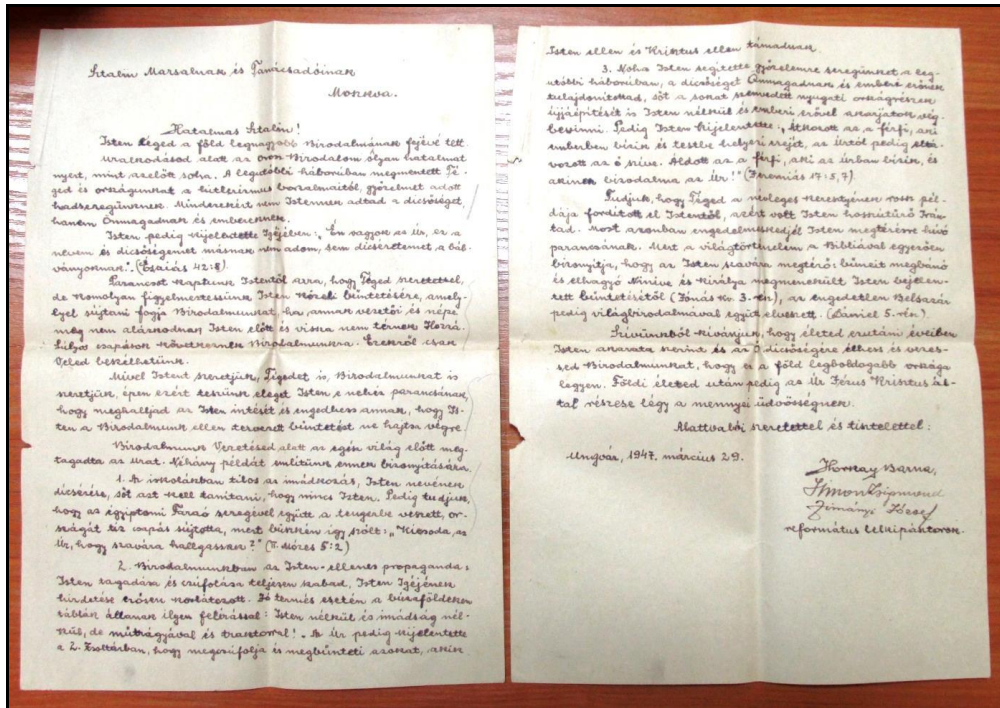 Sztalin Marsalnak és Tanácsadóinak
Moszkva.
Hatalmas Sztalin!
Isten téged a föld legnagyobb Birodalmának fejévé tett.
Uralkodásod alatt az orosz Birodalom olyan hatalmat
nyert, mint azelőtt soha. A legutóbbi háborúban megmentett Té-
ged és országunkat a hitlerizmus borzalmaitól, győzelmet adott
hadseregünknek. Mindezekért nem Istennek adtad a dicsőséget,
hanem Önmagadnak és embereknek.
Isten pedig kijelentette Igéjében: „Én vagyok az Úr, ez a
nevem és dicsőségemet másnak nem adom, sem dicséretemet a bál-
ványoknak." (Ésaiás 42:8)
Parancsot kaptunk Istentől arra, hogy Téged szeretettel,
de komolyan figyelmeztessünk Isten közeli büntetésére, amely-
lyel sújtani fogja Birodalmunkat, ha annak vezetői és népe
meg nem alázkodnak Isten előtt és vissza nem térnek Hozzá.
Súlyos csapások következnek Birodalmunkra. Ezekről csak
Veled beszélhetünk.
Mivel Istent szeretjük, Tégedet is, Birodalmunkat is
szeretjük, épen ezért teszünk eleget Isten e nehéz parancsának,
hogy meghalljad az Isten intését és engedhess annak, hogy Is-
ten a Birodalmunk ellen tervezett büntetést ne hajtsa végre.
Birodalmunk Vezetésed alatt az egész világ előtt meg-
tagadta az Urat. Néhány példát említünk ennek bizonyítására.
1. Az iskolákban tilos az imádkozás, Isten nevének
dícsérése, sőt azt kell tanítani, hogy nincs Isten. Pedig tudjuk,
hogy az égyiptomi Faraó seregével együtt a tengerbe veszett, or-
szágát tíz csapás sújtotta, mert büszkén így szólt: „Kicsoda az
Úr, hogy szavára hallgassak?" (II. Mózes 5:2)
2. Birodalmunkban az Isten-ellenes propaganda:
Isten tagadása és csúfolása teljesen szabad, Isten Igéjének
hirdetése erősen korlátozott. Jó termés esetén a búzaföldeken
táblák állanak ilyen felírással: Isten nélkül és imádság nél-
kül, de műtrágyával és traktorral! Az Úr pedig kijelentette
a 2. Zsoltárban, hogy megcsúfolja és megbünteti azokat, akik
Isten ellen és Krisztus ellen támadnak.
3. Noha Isten segítette győzelemre seregünket a leg-
utóbbi háborúban, a dicsőséget Önmagadnak és emberi erőnek
tulajdonítottad, sőt a sokat szenvedett nyugati országrészek
újjáépítését is Isten nélkül és emberi erővel akarjátok vég-
bevinni. Pedig Isten kijelentette: „Átkozott az a férfi, aki
emberben bízik és testbe helyezi erejét, az Úrtól pedig eltá-
vozott az ő szíve. Áldott az a férfi, aki az Úrban bízik, és
akinek bizodalma az Úr!" (Jeremiás 17:5,7)
Tudjuk, hogy Téged a névleges keresztyének rossz pél-
dája fordított el Istentől, azért volt Isten hosszútűrő Irán-
tad. Most azonban engedelmeskedjél Isten megtérésre hívó
parancsának. Mert a világtörténelem a Bibliával egyezően
bizonyítja, hogy az Isten szavára megtérő: bűneit megbánó
és elhagyó Ninive és királya megmenekült Isten bejelen-
tett büntetésétől (Jónás Kv. 3.-én), az engedetlen Belsazár
pedig világbirodalmával együtt elveszett. (Dániel 5.-én).
Szívünkből kívánjuk, hogy életed ezutáni éveiben
Isten akarata szerint és az Ő dicsőségére élhess és vezes-
sed Birodalmunkat, hogy ez a föld legboldogabb országa
legyen. Földi életed után pedig az Úr Jézus Krisztus ál-
tal részese légy a mennyei üdvösségnek.
Alattvalói szeretettel és tisztelettel:
Ungvár, 1947. március 29.
Horkay Barna,
Simon Zsigmond
Zimányi József
református lelkipásztorok.